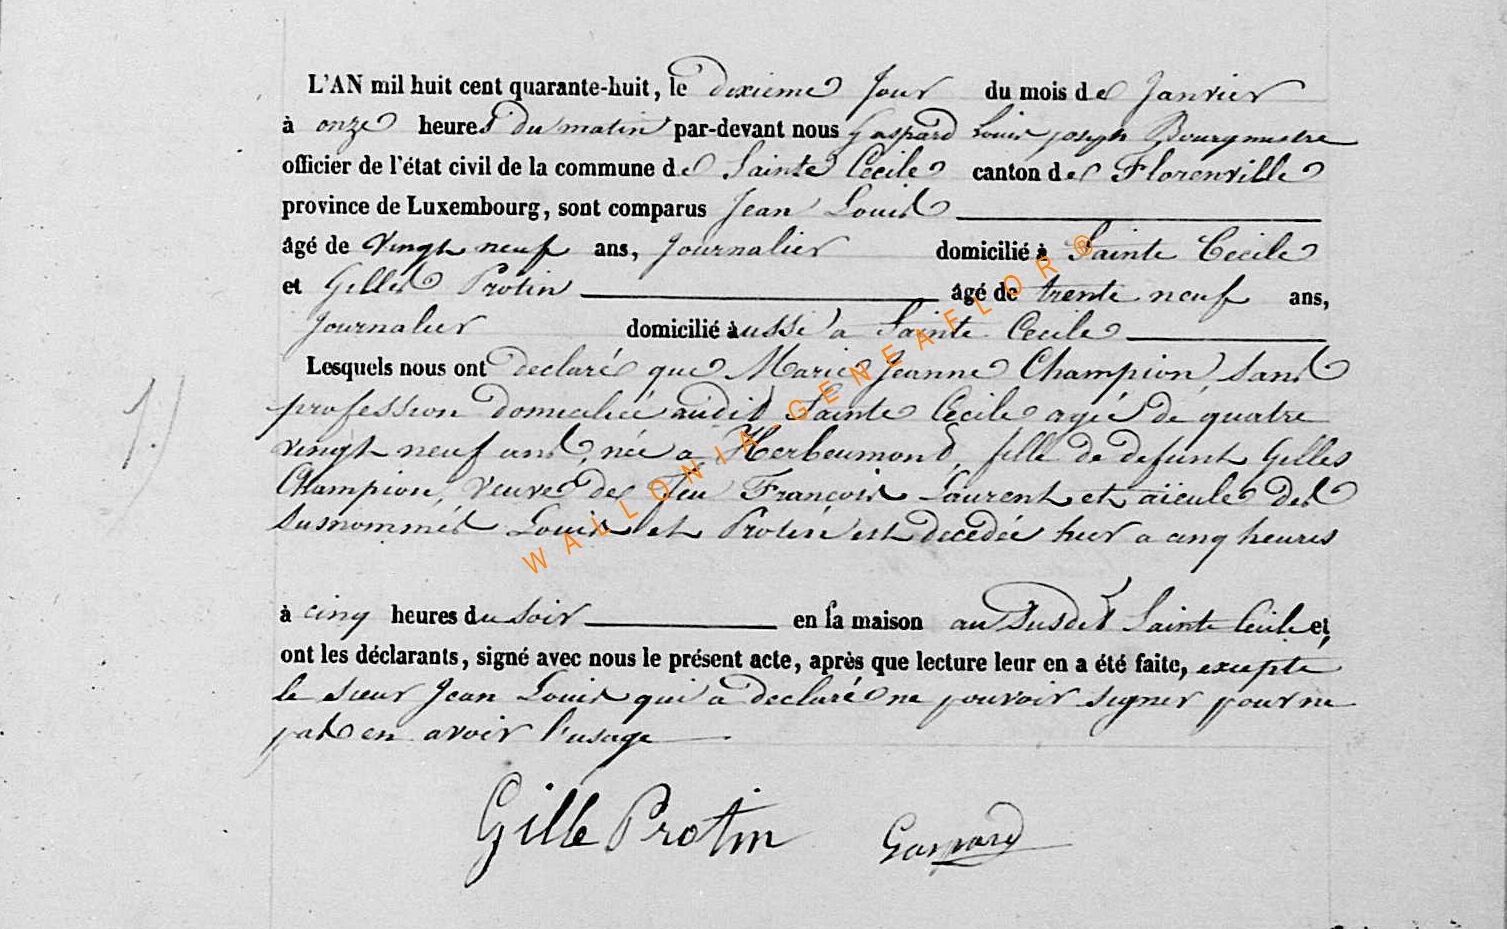 L'AN mil huit cent quarante-huit, le dixieme Jour du mois de Janvier
à onze heures du matin par-devant nous Gaspard Louis joseph Bourgmestre
officier de l'état civil de la commune de Sainte Cecile canton de Florenville
province de Luxembourg, sont comparus Jean Louis
âgé de vingt neuf ans, Journalier domicilié à Sainte Cecile
et Gilles Protin âgé de trente neuf ans,
Journalier domicilié aussi a Sainte Cecile
Lesquels nous ont declaré que Marie Jeanne Champion, sans
profession domiciliée audit Sainte Cecile agée de quatre
vingt neuf ans, née a Herbeumond, fille de defunt Gilles
Champion, veuve de feu François Laurent et aïeule des
susnommés Louis et Protin est decedée hier a cinq heures
à cinq heures du soir en sa maison au susdet Sainte Cecile et
ont les déclarants, signé avec nous le présent acte, après que lecture leur en a été faite, excepte
le sieur Jean Louis qui a declaré ne pouvoir signer pour ne
pas en avoir l'usage
Gille Protin Gaspard
1.)
WALLONIA-GENEAFLOR®